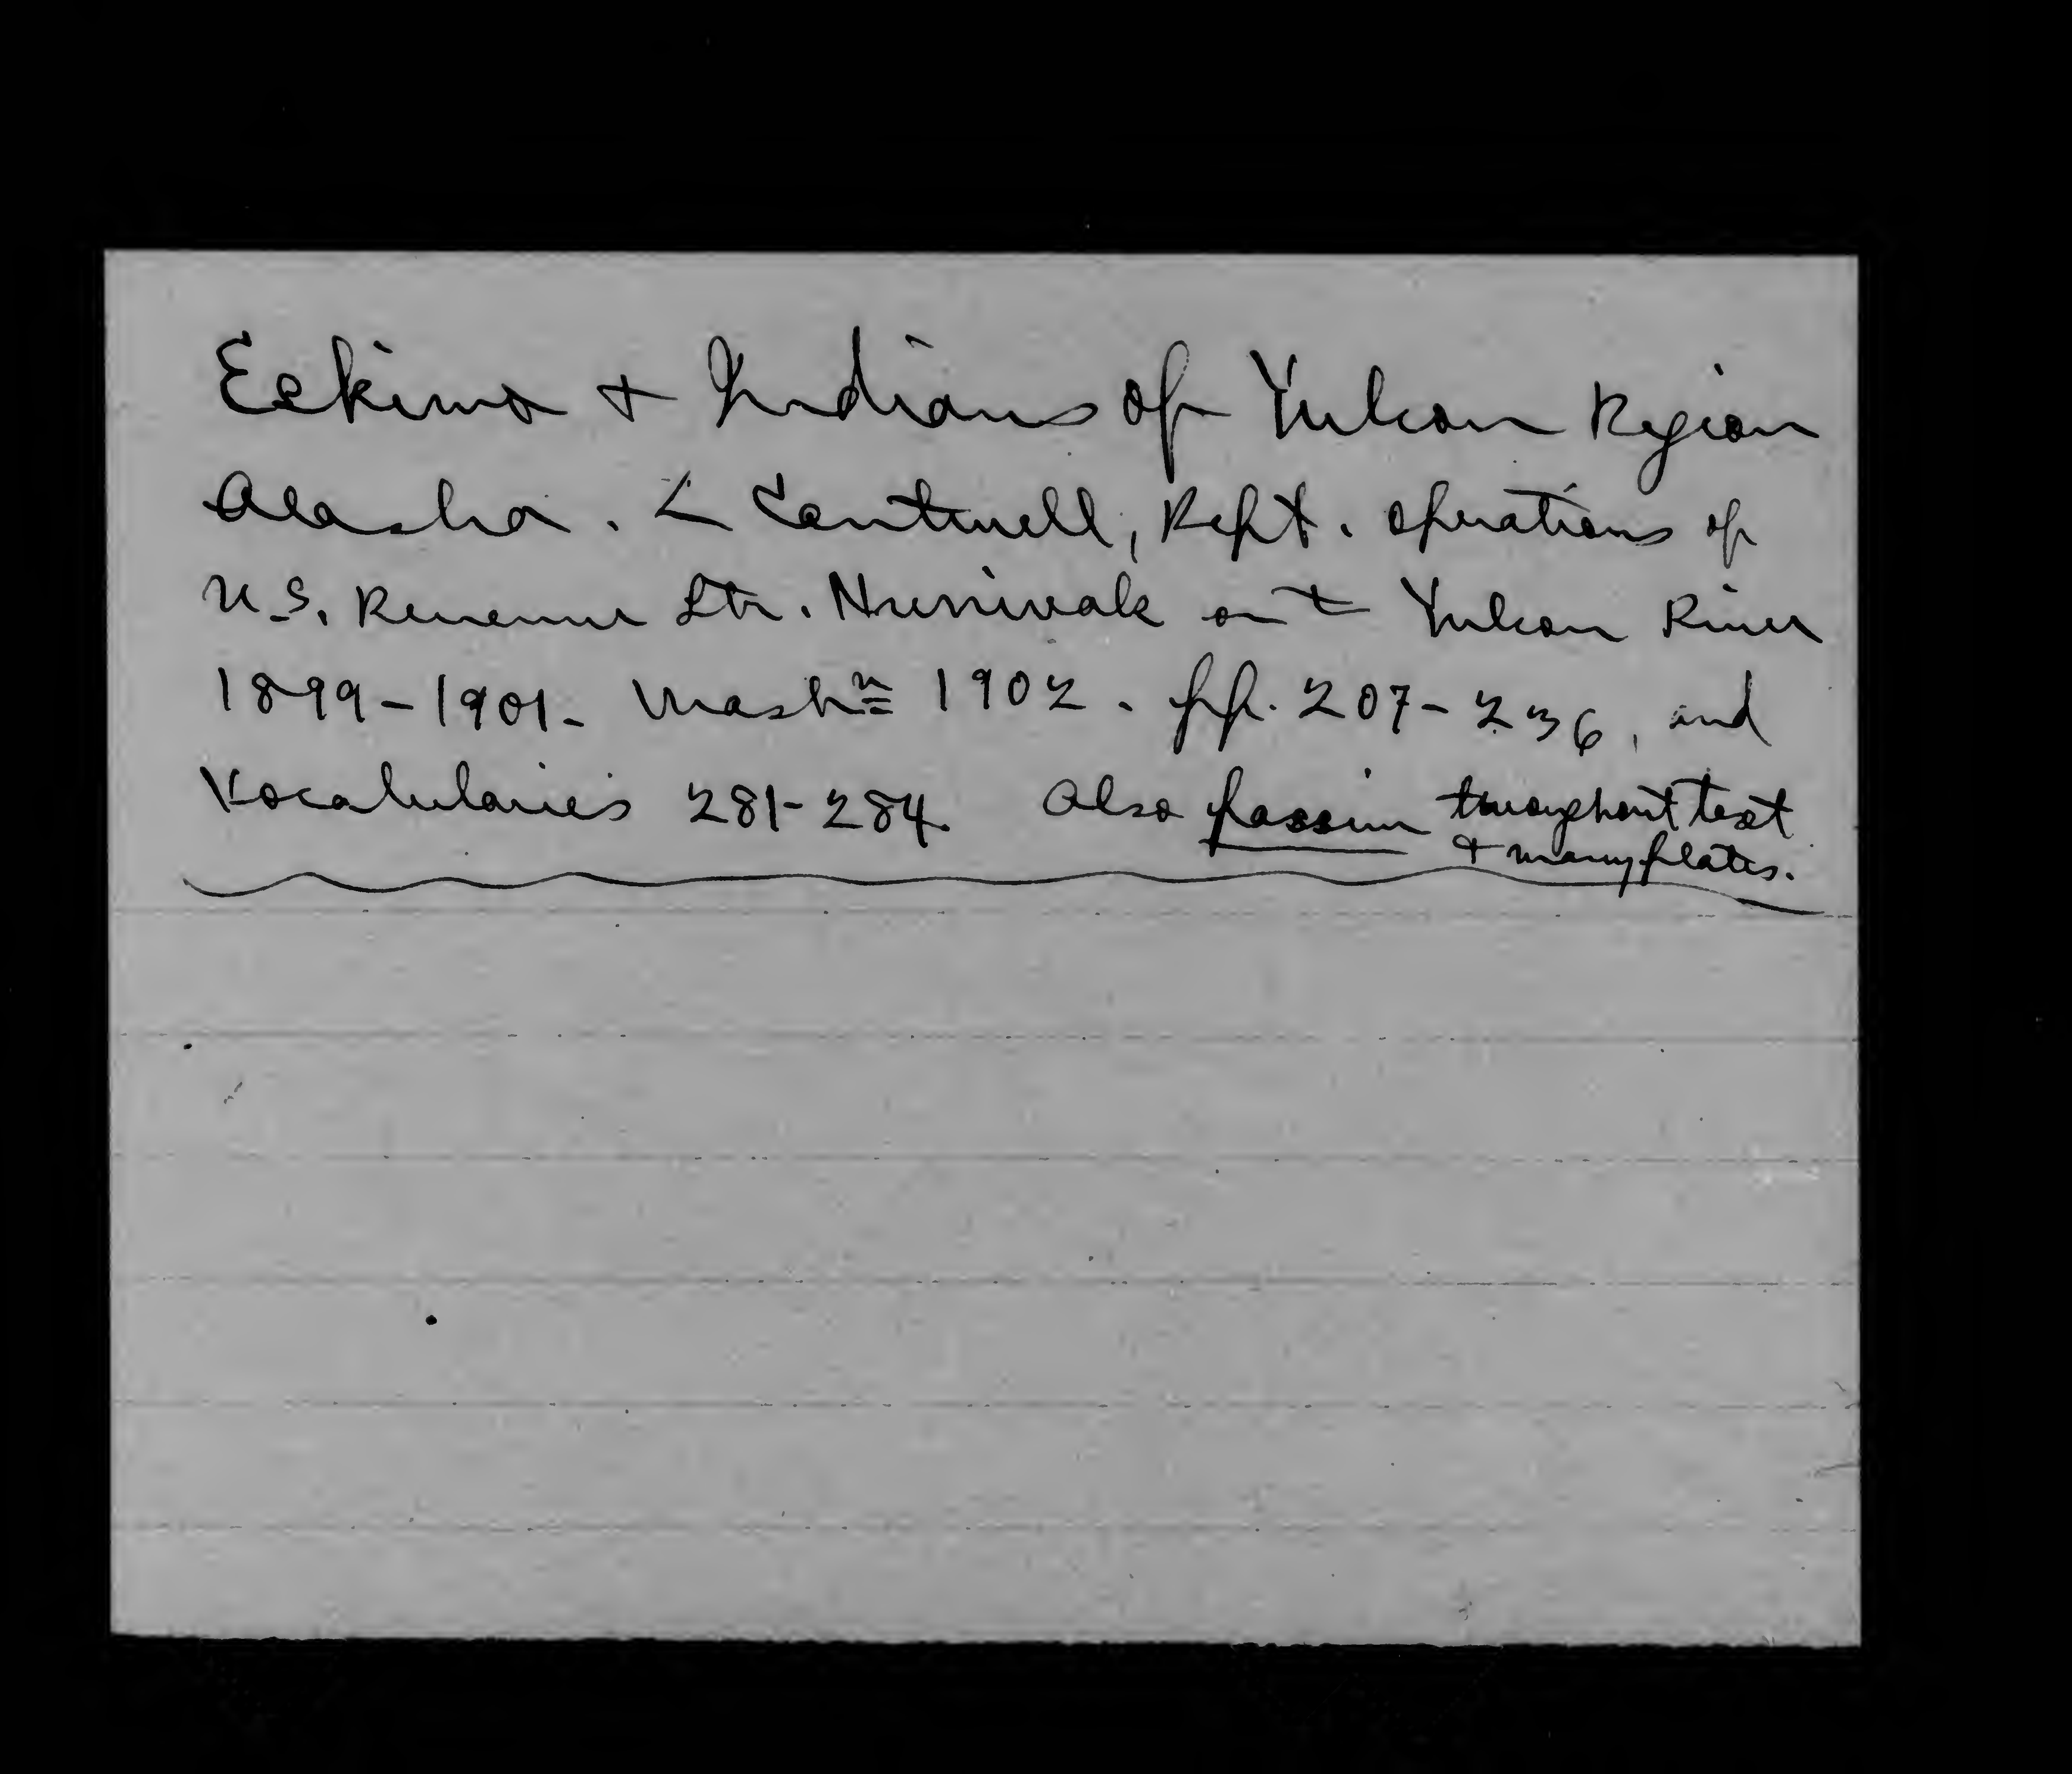 Eskimo + Indians of Yukon Region
Alaska. < Cantwell, Rept. operations of
U.S. Revenue Str. Nunivak on t Yukon River
1899-1901- Washn 1902. pp. 207-236, and
Vocabularies 281-284. Also passim throughout text
+ many plates.